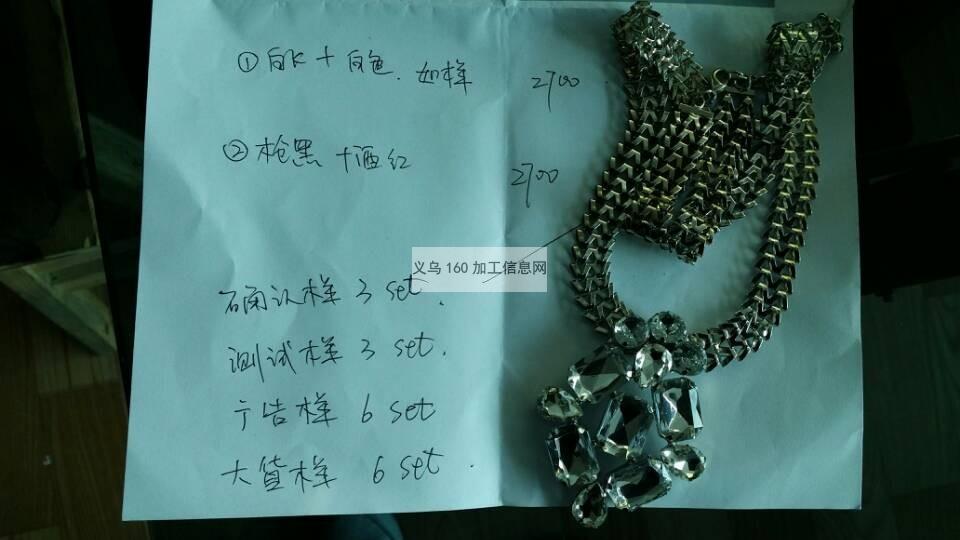 ①白K+白色.如样 2700
②枪黑+酒红 2700
义乌160加工信息网
确认样 3 set.
测试样 3 set.
广告样 6 set
大货样 6 set.